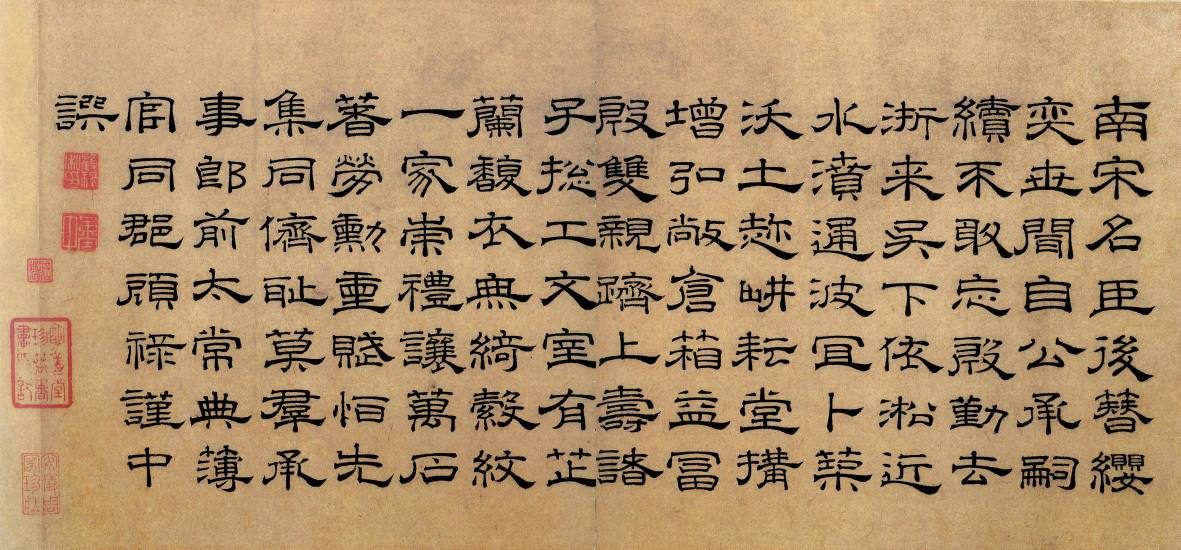 南宋名臣後簪纓
奕世間自公承嗣
續不敢忘殷勤去
浙来吳下依淞近
水濆通波冝卜築
沃土趂畊耘堂搆
增弘敞倉箱益冨
殷雙親躋上壽諸
子捴工文室有芷
蘭馥衣無綺縠紋
一家崇禮讓萬石
著勞勳重賦恒先
集同儕耻莫羣承
事郎前太常典簿
宦同郡顧祿謹中
譔